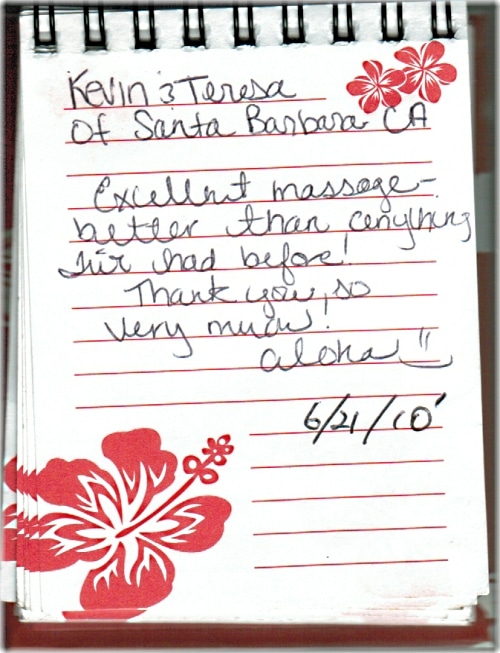 Kevin & Teresa
Of Santa Barbara CA
Excellent massage-
better than anything
I've had before!
Thank you, so
very much!
aloha
6/21/10'